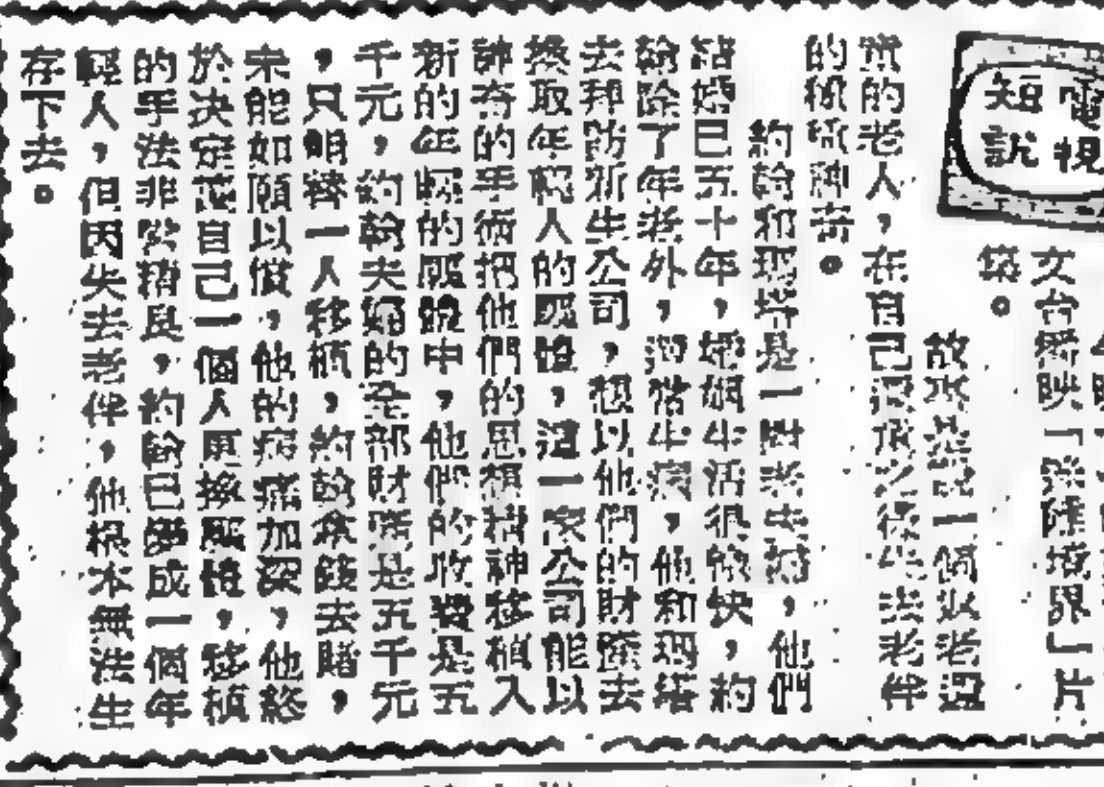 電視
短說
女台播映「陰陽境界」片
集。
故事是說一個以老邁
的老人,在自己
失去老伴
的種種神奇。
約翰和瑪塔是一對老夫婦,他們
結婚已五十年,婚姻生活很愉快,約
翰除了年老外,還患病,他和瑪塔
去拜訪新生公司,想以他們的財產去
換取年輕人的軀體,這一家公司能以
神奇的手術把他們的思想精神移植入
新的年輕的軀體中,他們的收費是五
千元,約翰夫婦的全部財產是五千元
,只夠替一人移植,約翰拿錢去賭,
未能如願以償,他的病痛加深,他終
於決定讓自己一個人更換軀體,移植
的手法非常精良,約翰已變成一個年
輕人,但因失去老伴,他根本無法生
存下去。